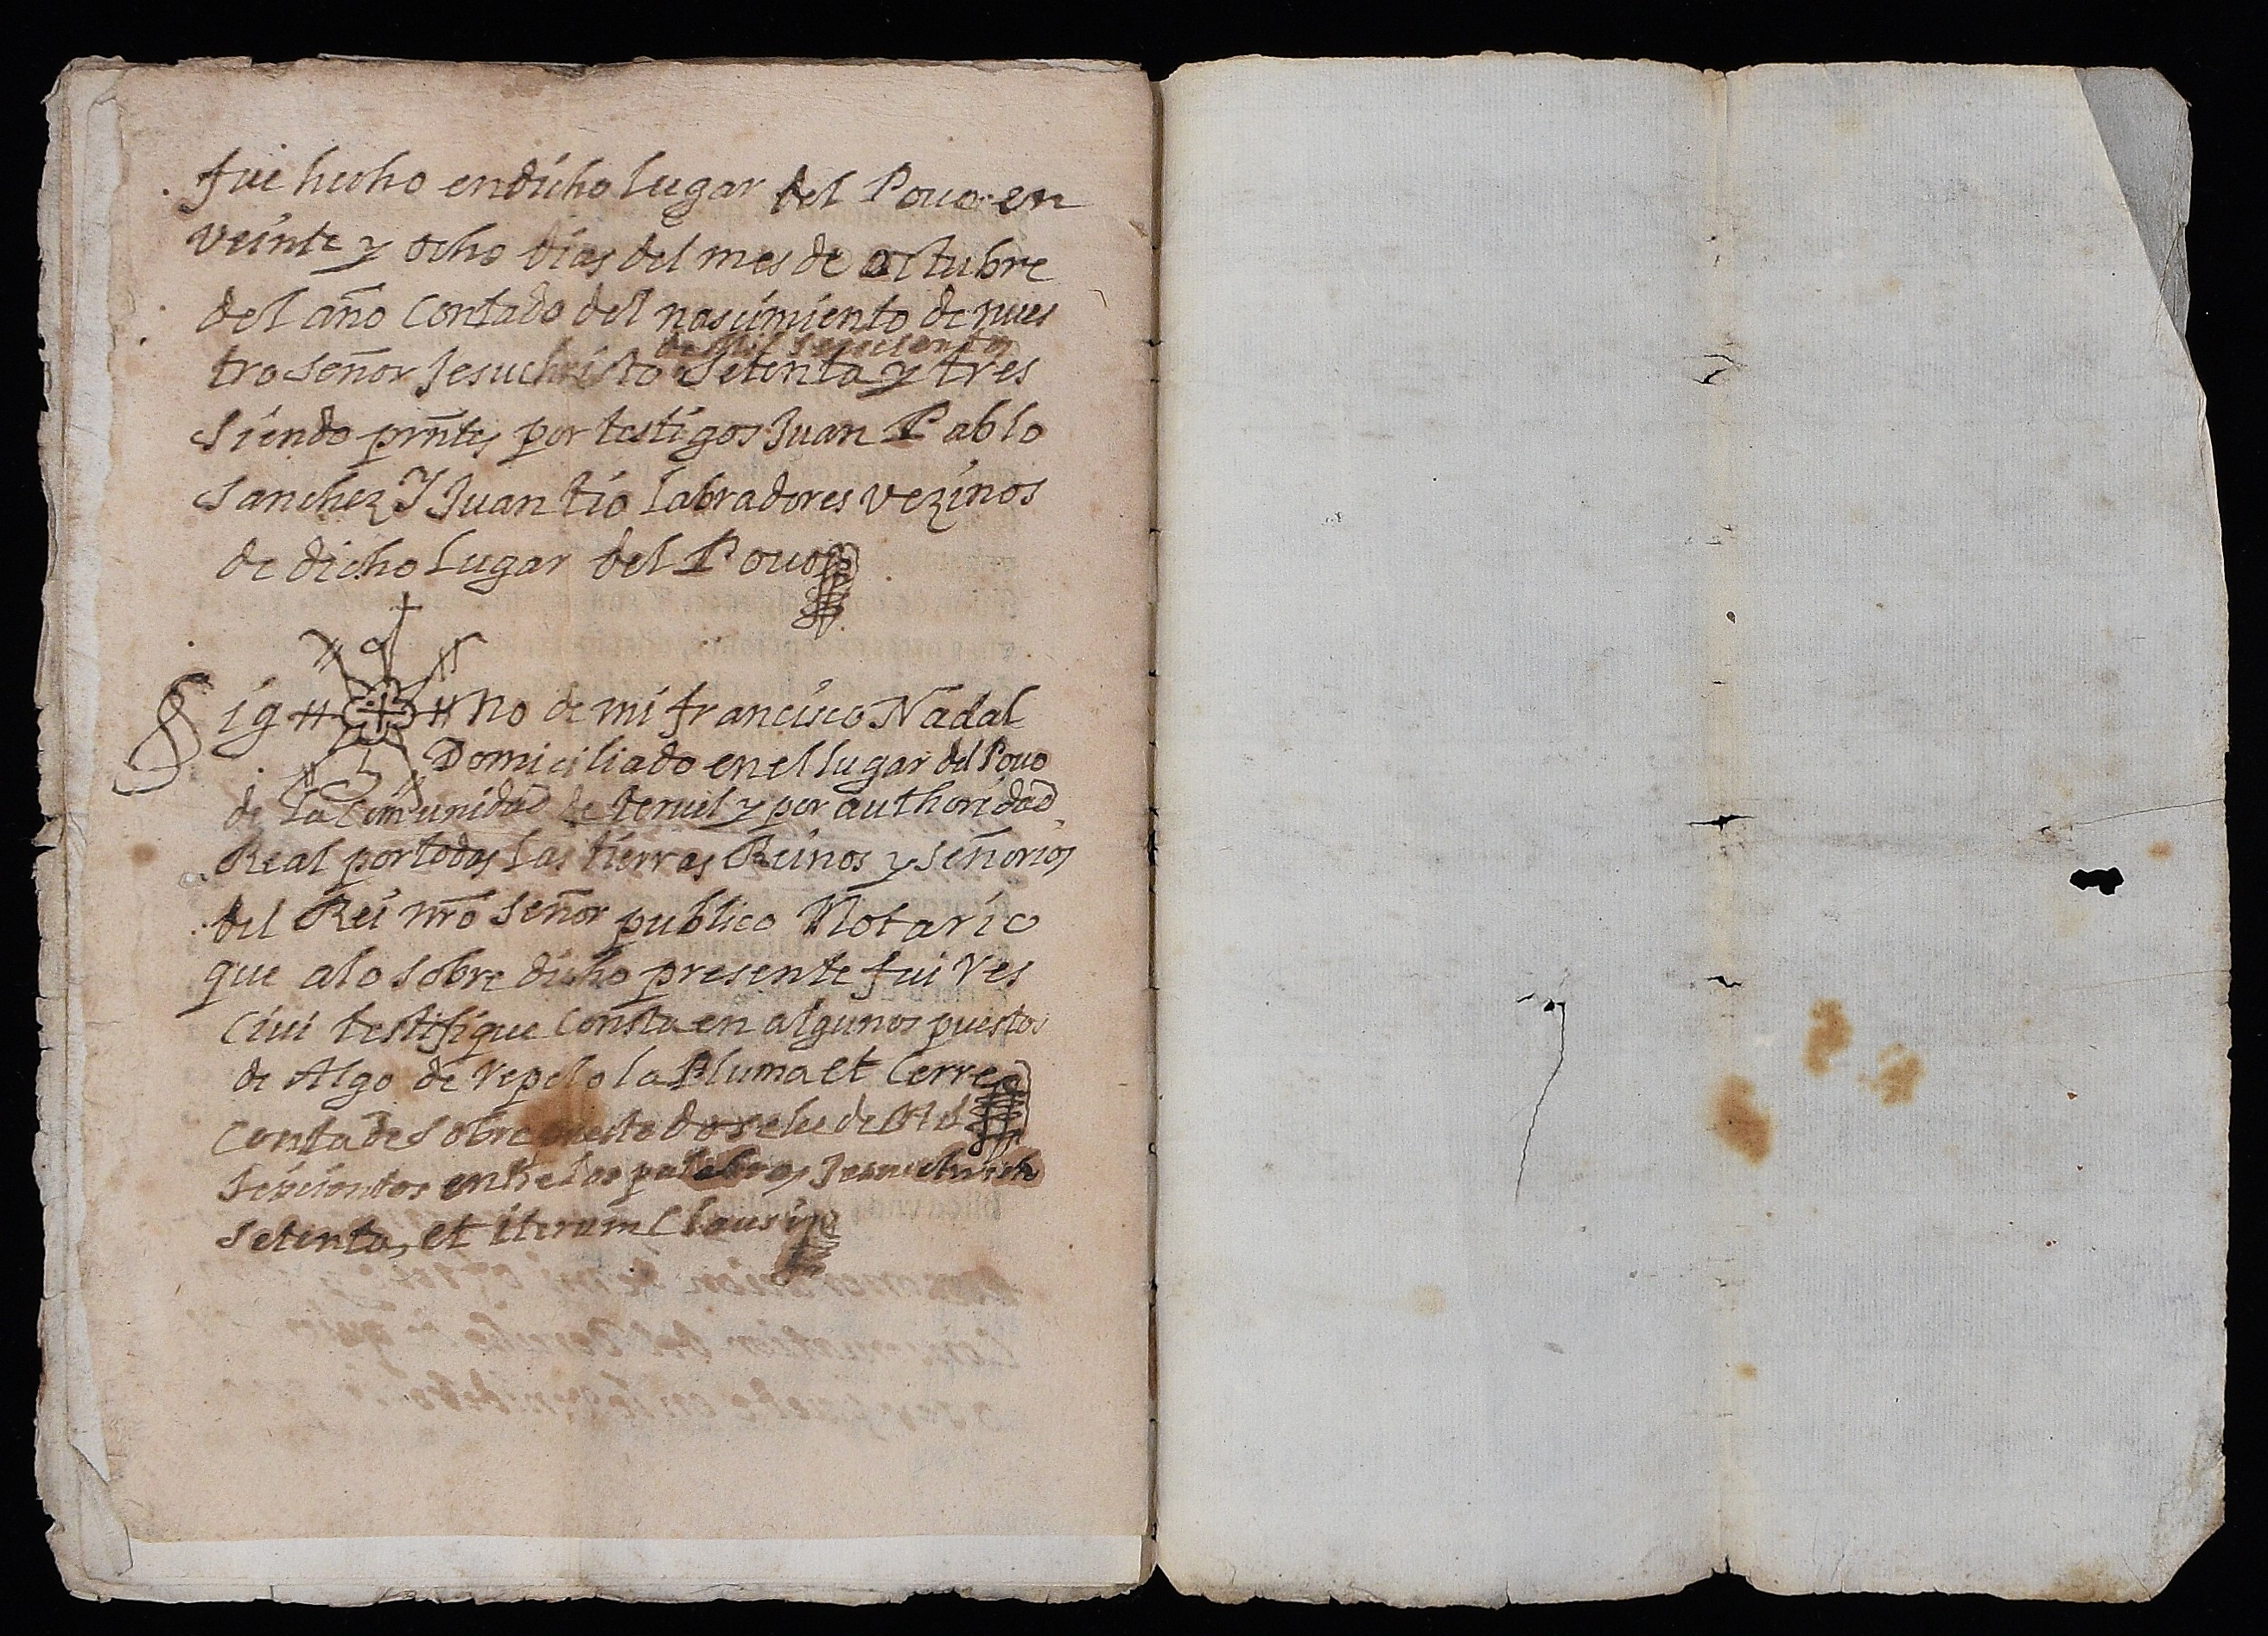 fue hecho en dicho lugar del Pouo en
veinte y ocho dias del mes de octubre
del año contado del nascimiento de nues
de Mil seiscientos
tro señor Jesuchristo setenta y tres
siendo pr̃ntes por testigos Juan Pablo
Sanchez Y Juan tio labradores vezinos
de dicho lugar del Pouo
Sig no de mi francisco Nadal
Domiciliado en el lugar del Pouo
de la Comunidad de teruel y por authoridad
Real por todas las tierras Reinos y señorios
del Rei nr̃o señor publico Notario
que alo sobre dicho presente fui Ves
Ciui testifique Consta en algunos puestos
de Algo de Vepelo la Pluma et Cerre
Conta de sobre puesto do se lee de Mil
seiscientos entre las palabras Jesuchristo
setenta, et iterum Clausi